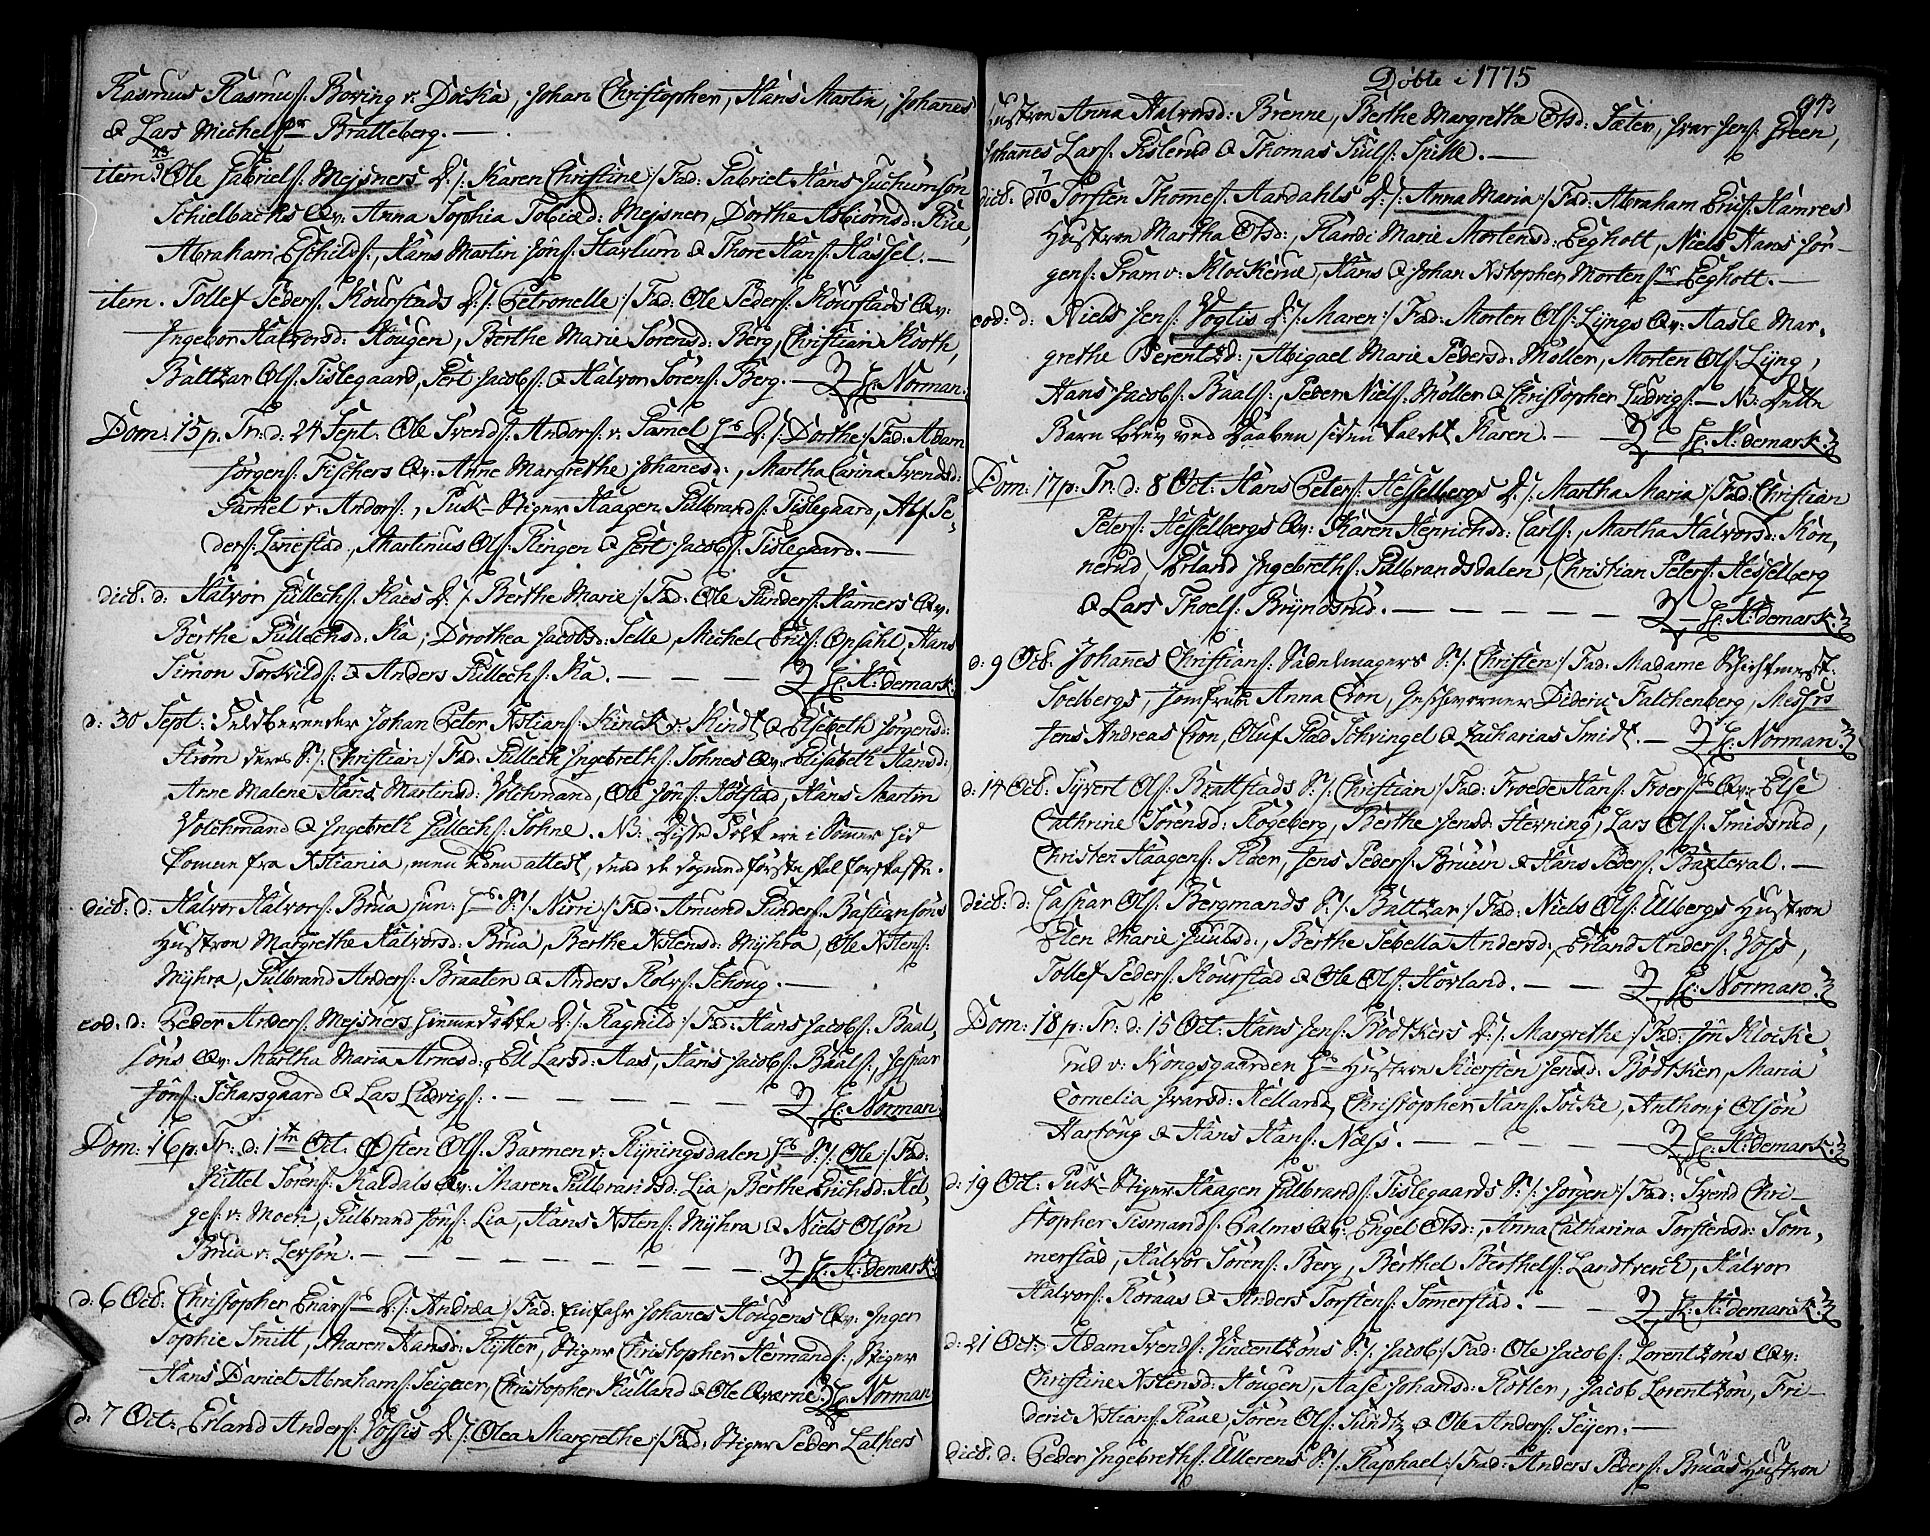 Rasmus Rasmusſ: Boring v. Docka, Johan Christopher, Hans Martin, Johanes
& Lars Michelſ:er Bratteberg. —
item 23/9 Ole Gabrielſ: Mejsners D: /: Karen Christine :/ Fad: Gabriel Hans Juchumsøn
Schielbachs Qv: Anna Sophia Tobiæd: Mejsner, Dorthe Asbiörnsd: Rue,
Abraham Eschildſ:, Hans Martin Jönſ: Havlum & Thore Hanſ: Hassel. —
item. Tollef Pederſ: Kourstads D: /: Petronelle :/ Fad: Ole Pederſ: Kourstads Qv:
Ingebor Halvorsd: Hougen, Berthe Marie Sörensd: Berg, Christian Kooth,
Baltzar Olſ: Tislegaard, Gert Jacobſ: & Halvor Sörenſ: Berg. — H: Norman.
Dom: 15 p. Tr: d: 24 Sept. Ole Svendſ: Andorſ: v. Gamel D: /: Dorthe :/ Fad: Adam
Jörgenſ: Fischers Qv: Anne Margrethe Johanesd:, Martha Carina Svendsd:
Gamel v. Andorſ:, Puk-Stiger Haagen Gulbrandſ: Tislegaard, Alf Pe-
derſ: Liniestad, Martinus Olſ: Ringen & Gert Jacobſ: Tislegaard. —
dict. d: Halvor Gullechſ: Kaes D: /: Berthe Marie :/ Fad: Ole Gunderſ: Hamers Qv:
Berthe Gullechsd: Ka, Dorothea Jacobsd: Selle, Michel Ericſ: Opsahl, Hans
Simon Torkildſ: & Anders Gullechſ: Ka. — — — H: H: demark.
d: 30 Sept: Johan Peter Xstianſ: Kinck v. Kindt & Elsebeth Jörgensd:
Ström deres S: /: Christian :/ Fad: Gullech Ingebrethſ: Johnes Qv: Elisabeth Hansd:
Anne Malene Hans Martinsd: Volchmand, Ole Jönſ: Holstad, Hans Martin
Volchmand & Ingebreth Gullechſ: Johne. NB: Disse Folk ere i Somer hid
komne fra Xstiania, men uden attest, som de
dict. d: Halvor Halvorſ: Brua jun: S: /: Nirri :/ Fad: Amund Gunderſ: Bastiansöns
Hustroe Margrethe Halvorsd: Brua, Berthe Xstensd: Myhra, Ole Xstenſ:
Myhra, Gulbrand Anderſ: Braaten & Anders Rolvſ: Schoug. —
eod. d: Peder Anderſ: Mejsners hiemmedöbte D: /: Ragnild :/ Fad: Hans Jacobſ: Baal,
söns Qv: Martha Maria Arnesd:, Eli Larsd: Aas, Hans Jacobſ: Baalſ:, Jespar
Jönſ: Scharsgaard & Lars Ludvigſ:. — — — H: Norman
Dom: 16 p. Tr: d: 1te Oct. Östen Olſ: Barmen v. Ryningsdalen S: /: Ole :/ Fad:
Kittel Sörenſ: Kaldals Qv: Maren Gulbrandsd: Lia, Berthe Erichsd: Hel-
geſ: v: Moen, Gulbrand Jönſ: Lia, Hans Xstenſ: Myhra & Niels Olsön
Brua v: Lersön. — — — — H: H: demark.
d: 6 Oct: Christopher Enarſ: D: /: Andrea :/ Fad: Einfahr Johanes Hougens Qv: Inger
Sophie Smitt, Maren Hansd: Rytter, Stiger Christopher Hermandſ:, Stiger
Hans Daniel Abrahamſ: Seigerer, Christopher Hulland & Ole Qværne. H: Norman
d: 7 Oct: Erland Anderſ: Vossis D: /: Olea Margrethe :/ Fad: Stiger Peder Lathers
Döbte i 1775
Hustroe Anna Halvorsd: Brenne, Berthe Margrethe Olsd: Sæter, Ivar Jenſ: Green,
Johanes Larſ: Tislerud & Thomas Juulſ: Spilke. —
dict. d: 7/10 Torsten Thomeſ: Aardahls D: /: Anna Maria :/ Fad: Abraham Ericſ: Hamres
Hustroe Martha Olsd:, Randi Marie Mortensd: Egholt, Niels Hans Jör-
genſ: Pram v: Klockerue, Hans & Johan Xstopher Mortenſ:er Egholt. —
eod: d: Niels Jenſ: Voglis D: /: Maren :/ Fad: Morten Olſ: Lyngs Qv: Aasle Mar-
grethe Berentzd:, Abigael Marie Pedersd: Möller, Morten Olſ: Lyng,
Hans Jacobſ: Baalſ:, Peder Nielſ: Möller & Christopher Ludvigſ: — NB: Dette
Barn blev ved Daaben siden kaldet Karen. — H: H: demark.
Dom: 17 p: Tr: d: 8 Oct: Hans Peterſ: Hesselbergs D: /: Martha Maria :/ Fad: Christian
Peterſ: Hesselbergs Qv: Karen Henrichsd: Carlſ:, Martha Halvorsd: Kon-
nerud, Erland Ingebrethſ: Gulbrandsdalen, Christian Peterſ: Hesselberg
& Lars Thoelſ: Bryndsrud. — — — H: H: demark.
d: 9 Oct. Johanes Christianſ: Sadelmagers S: /: Christen :/ Fad: Madame Schichtmest:
Soelbergs, Jomfrue Anna Cron, Geschworner Dideric Falchenberg, Messrs
Jens Andreas Cron, Oluf Rlad Schvingel & Zacharias Smidt. — H: Norman.
d: 14 Oct: Syvert Olſ: Brattstads S: /: Christian :/ Fad: Froede Hanſ: Froerſ: Qv: Else
Cathrine Sörensd: Rogeberg, Berthe Jensd: Hevning, Lars Olſ: Smidsrud,
Christen Haagenſ: Floer, Jens Pederſ: Bruun & Hans Pederſ: Baxteval. —
dict. d: Caspar Olſ: Bergmands S: /: Baltzar :/ Fad: Niels Olſ: Ulbergs Hustroe
Elen Marie Juulsd:, Berthe Sebella Andersd:, Erland Anderſ: Voss,
Tollef Pederſ: Kourstad & Ole Olſ: Hovland. — — H: Norman.
Dom: 18 p: Tr: d: 15 Oct: Hans Jenſ: Bödtkers D: /: Margrethe :/ Fad: Jön Klocke-
rud v: Kongsgaarden Hustroe Kiersten Jensd: Bödtker, Maria
Cornelia Ivarsd: Hellard, Christopher Hanſ: Tocke, Anthony Olsön
Hartoug & Hans Hanſ: Næss. — — — H: H: demark.
d: 19 Oct: Puk-Stiger Haagen Gulbrandſ: Tislegaards S: /: Jorgen :/ Fad: Svend Chri-
stopher Tismandſ: Palms Qv: Engel Olsd:, Anna Catharina Torstensd: Som-
merstad, Halvor Sörenſ: Berg, Berthel Berthelſ: Landtverch, Halvor
Halvorſ: Roraas & Anders Torstenſ: Somerstad. — — H: H: demarck.
d: 21 Oct: Adam Svendſ: Vincentzöns S: /: Jacob :/ Fad: Ole Jacobſ: Lorentzöns Qv:
Christine Xstensd: Hougen, Aase Johansd: Kotler, Jacob Lorentzön, Fri-
deric Xstianſ: Raue, Sören Olſ: Sundtz & Ole Anderſ: Seyer. —
dict. d: Peder Ingebrethſ: Ullerens S: /: Raphael :/ Fad: Anders Pederſ: Bruas Hustroe